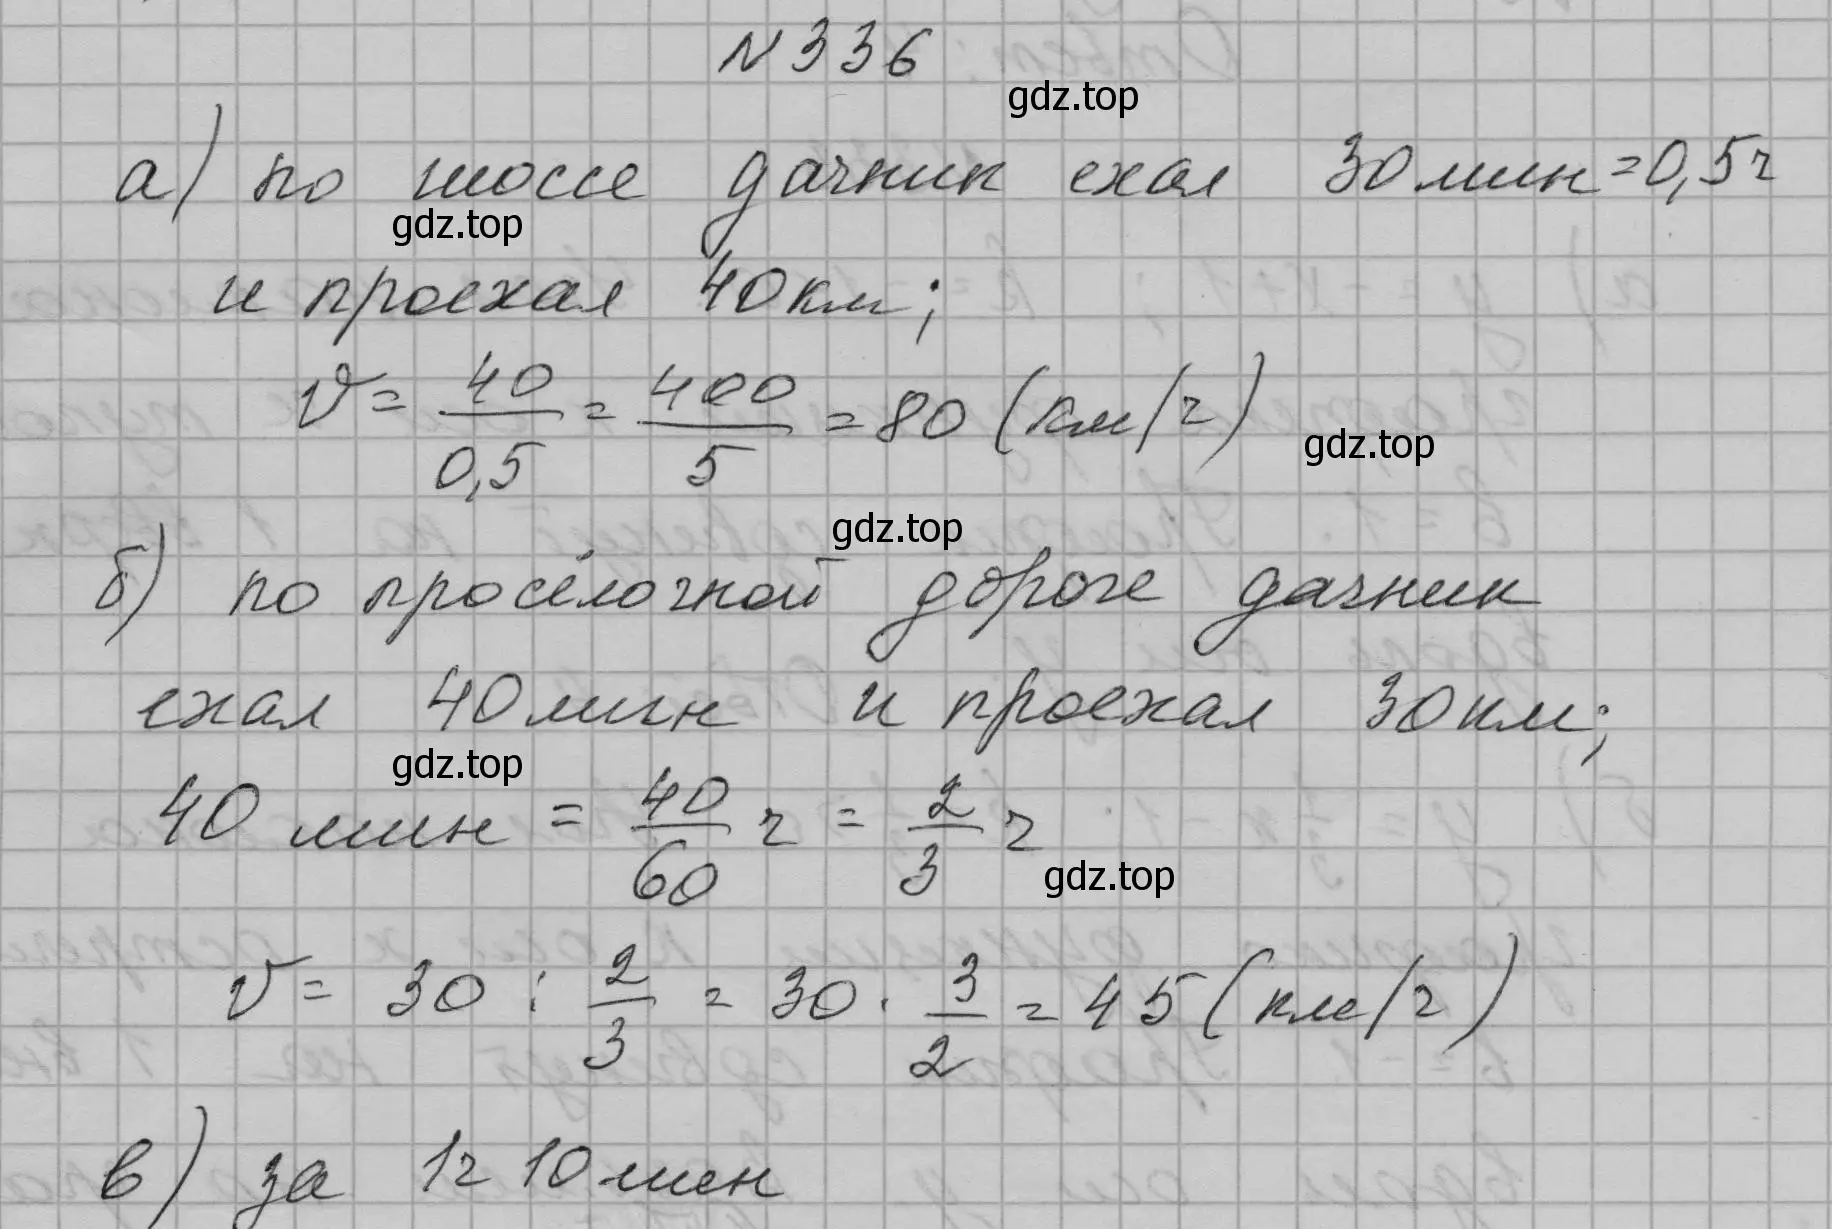 N 336
gdz.top
а) по шоссе дачник ехал 30 мин = 0,5 ч
gdz.top
и проехал 40 км;
v = 40/0,5 = 400/5 = 80 (км/ч)
gdz.top
gdz.top
б) по просёлочной дороге дачник
ехал 40 мин и проехал 30 км;
gdz.top
40 мин = 40/60 ч = 2/3 ч
gdz.top
v = 30 : 2/3 = 30 · 3/2 = 45 (км/ч)
в) за 1ч 10 мин